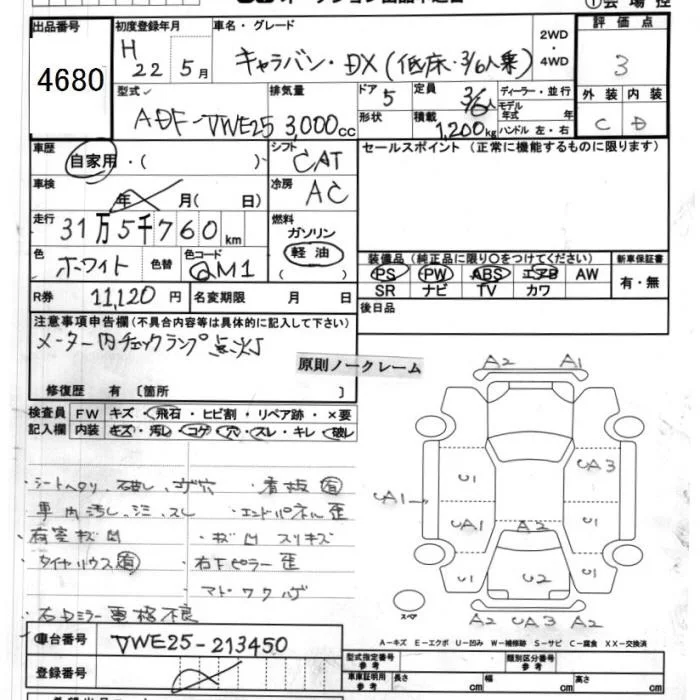 ①会場控
出品番号
4680
初度登録年月
H 22 5月
車名・グレード
キャラバン・DX(低床・3/6人乗)
2WD
・
4WD
評価点
3
型式
ADF-VWE25
排気量
3,000cc
ドア 5
形状
定員 3/6人
積載 1,200kg
ディーラー・並行
モデル年式 年
ハンドル 左・右
外装 内装
C D
車歴
自家用・( )
シフト
CAT
車検
年 月( 日)
冷房
AC
走行
31万5千760km
燃料
ガソリン
軽油
色
ホワイト
色替
色コード
QM1
R券 11,120円
名変期限 月 日
セールスポイント(正常に機能するものに限ります)
装備品(純正品に限り○をつけてください)
PS PW ABS エアB AW
SR ナビ TV カワ
新車保証書
有・無
後日品
注意事項申告欄(不具合内容等は具体的に記入して下さい)
メーター内チェックランプ点灯
修復歴 有〔箇所 〕
原則ノークレーム
検査員記入欄
FW キズ・飛石・ヒビ割・リペア跡・×要
内装 キズ・汚レ・コゲ・穴・スレ・キレ・破レ
・シートヘタリ、破レ、コゲ穴 ・看板有
・車内汚し、シミ、スレ ・エンドパネル歪
・荷室キズ凹 ・キズ凹 スリキズ
・タイヤハウス有 ・右Fピラー歪
・マドワクハゲ
・右ミラー電格不良
A2 A1
U1 UA3
UA1 UA1 A2 U1
U1 U2 U1
スペア
A2 UA3 A2
A-キズ E-エクボ U-凹み W-補修跡 S-サビ C-腐食 XX-交換済
車台番号
VWE25-213450
登録番号
型式指定番号 参考
類別区分番号 参考
車庫証明用 参考
長さ cm 車幅 cm 高さ cm